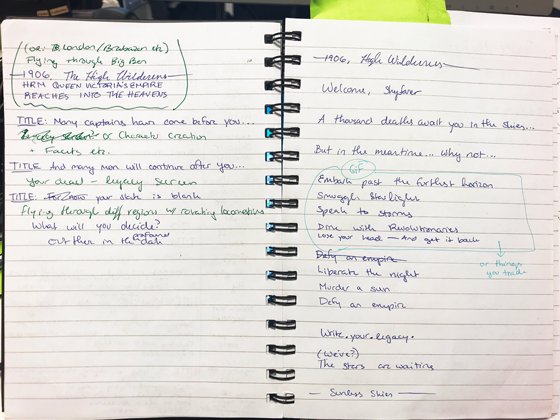 (or: London/Brabazon etc)
Flying through Big Ben
1906. The High Wilderness
HRM QUEEN VICTORIA'S EMPIRE
REACHES INTO THE HEAVENS
TITLE: Many captains have come before you...
or Character creation
+ Facets etc.
TITLE And many more will continue after you...
Your dead - legacy screen
TITLE: For now your slate is blank
Flying through diff regions w rotating locomotives
What will you decide?
Out ther in the dark
1906, High Wilderness
Welcome, Skyfarer
A thousand deaths await you in the skies...
But in the meantime... Why not...
GIF
Embark past the furthest horizon
Smuggle starlight
Speak to storms
Dine with Revolutionaries
Lose your head - And get it back
or things you trade
Defy an empire
Liberate the night
Murder a sun
Defy an empire
Write.your.legacy.
(We're?)
The stars are waiting
Sunless Skies